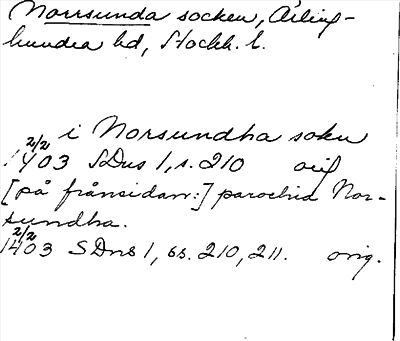 Norrsunda socken, Ärling-
hundra hd, Stockh. l.
i Norsundha sokn
2/2
1403 SDns 1, s. 210 orig
[på frånsidan:] parochia Nor-
sundha.
2/2
1403 SDns 1, ss. 210, 211. orig.